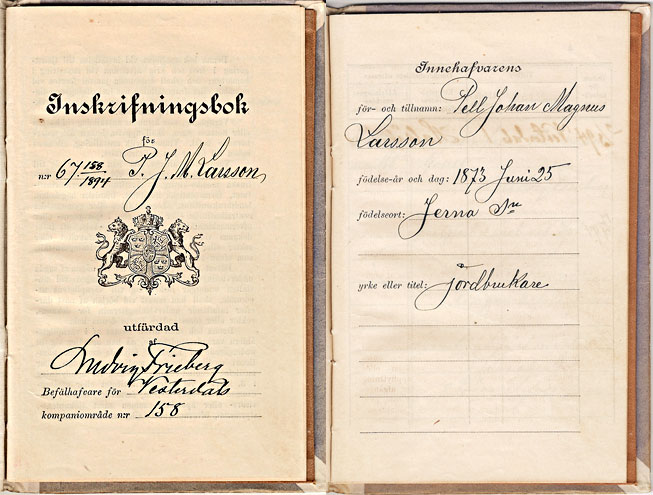 Inskrifningsbok
för
n:r 67 158/1894 P. J. M. Larsson
utfärdad
af
Ludvig Frieberg
Befälhafvare för Vesterdals
kompaniområde n:r 158
Innehafvarens
för- och tillnamn: Pell Johan Magnus
Larsson
födelse-år och dag: 1873 Juni 25
födelseort: Jerna
yrke eller titel: jordbrukare